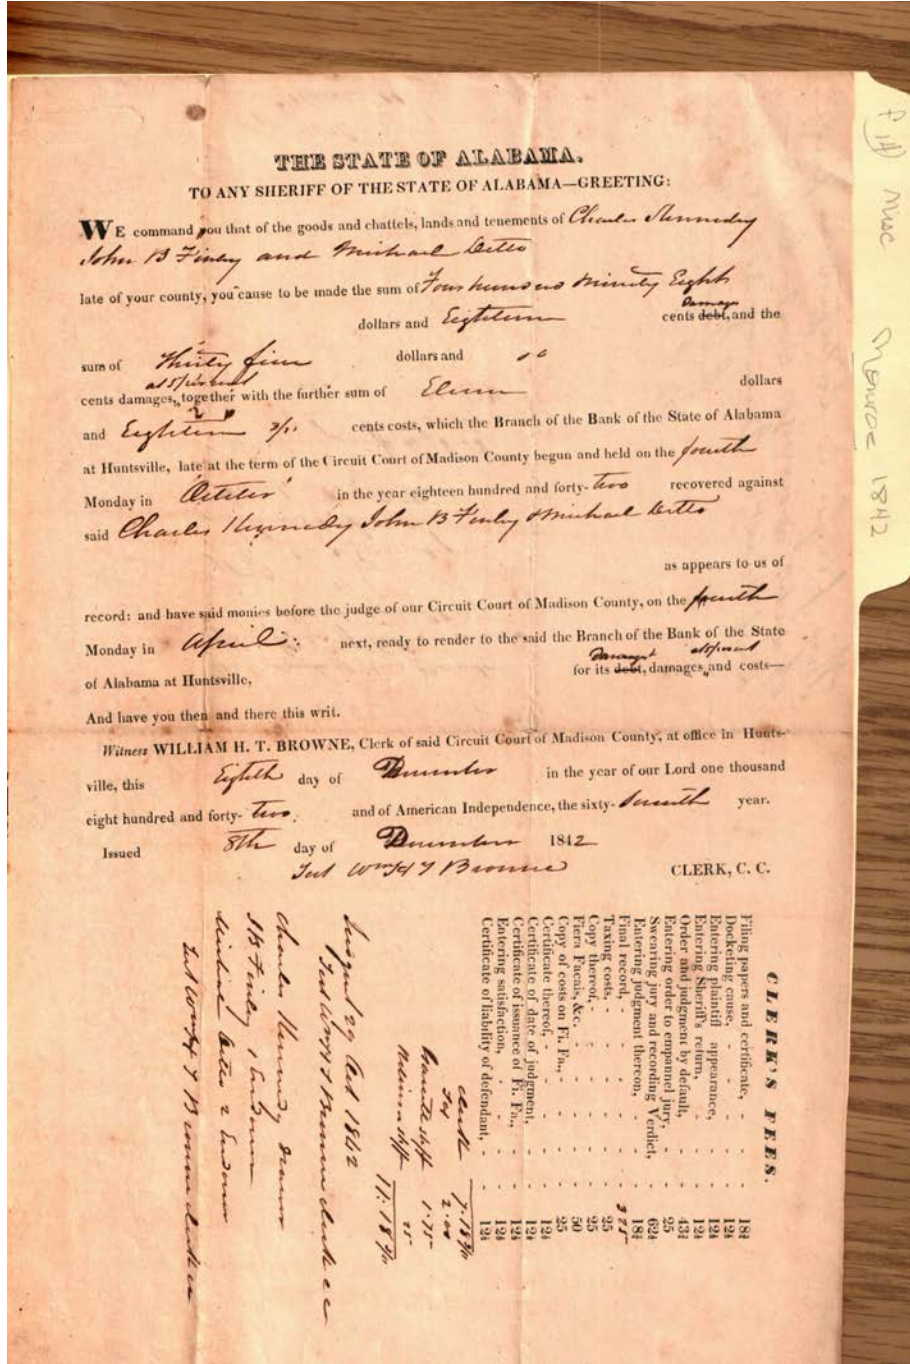 THE STATE OF ALABAMA.
TO ANY SHERIFF OF THE STATE OF ALABAMA—GREETING:
WE command you that of the goods and chattels, lands and tenements of Charles Kennedy
John B Finley and Michael Ditto
late of your county, you cause to be made the sum of Four hundred Ninety Eight
dollars and Eighteen cents debt, Damages and the
sum of Thirty five dollars and
cents damages, together with the further sum of Eleven dollars
and Eighteen cents costs, which the Branch of the Bank of the State of Alabama
at Huntsville, late at the term of the Circuit Court of Madison County begun and held on the fourth
Monday in October in the year eighteen hundred and forty- two recovered against
said Charles Kennedy John B Finley & Michael Ditto
as appears to us of
record: and have said monies before the judge of our Circuit Court of Madison County, on the fourth
Monday in April next, ready to render to the said the Branch of the Bank of the State
of Alabama at Huntsville, for its debt, Damages damages, and costs—
And have you then and there this writ.
Witness WILLIAM H. T. BROWNE, Clerk of said Circuit Court of Madison County, at office in Hunts-
ville, this Eighth day of December in the year of our Lord one thousand
eight hundred and forty- two, and of American Independence, the sixty- seventh year.
Issued 8th day of December 1842
Test Wm H T Browne CLERK, C. C.
CLERK'S FEES.
Filing papers and certificate, - - 18¾
Docketing cause, - - - 12½
Entering plaintiff appearance, - - 12½
Entering Sheriff's return, - - - 12½
Order and judgment by default, - - 43¾
Entering order to empannel jury, - - 25
Swearing jury and recording Verdict, - 62½
Entering judgment thereon, - - - 18¾
Final record, - - - - 3 75
Taxing costs, - - - - 25
Copy thereof, - - - - 25
Fiera Facais, &c. - - - - 50
Copy of costs on Fi. Fa., - - - 25
Certificate thereof, - - - - 12½
Certificate of date of judgment, - - 12½
Certificate of issuance of Fi. Fa., - - 12½
Entering satisfaction, - - - - 12½
Certificate of liability of defendant, - - 12½
Clerk 7.18
2.00
Shff 1.75
Madison Shff 25
11.18
29 Oct 1842
Test Wm H T Browne clerk cc
Charles Kennedy drawer
J B Finley 1 Endorser
Michael Ditto 2 Endorser
Test Wm H T Browne clerk cc
P 14 Misc Monroe 1842